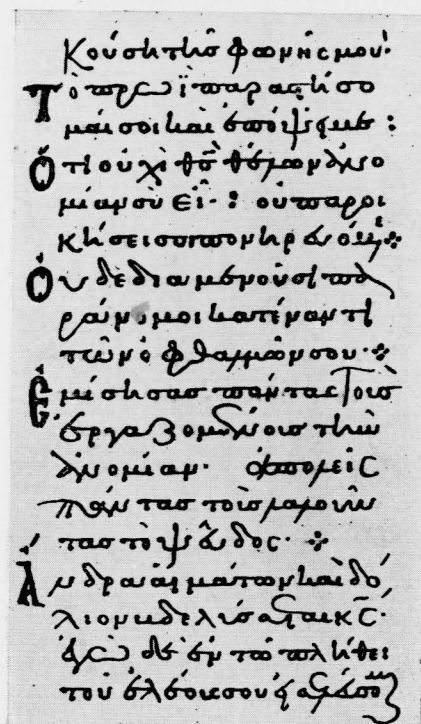 κούσητῆσ φωνῆς μου:
Τὸ πρωῒ παραστήσο
μαί σοι καὶ ἐπόψει με:
Ὅτι οὐχὶ θ̅ς̅ θέλων ἀνο
μίαν σὺ εἶ: οὐ παροι
κήσει σοι πονηρευόμε
Οὐδὲ διαμενοῦσι πα
ράνομοι κατέναντι
τῶν ὀφθαλμῶν σου·
Ἐμίσησασ πάντας τοὺσ
ἐργαζομένουσ τὴν
ἀνομίαν· ἀπολεῖς
πάντασ τοὺσ λαλοῦν
τασ τὸ ψεῦδος·
Ἄνδρα αἱμάτων καὶ δό
λιον βδελύσεται κ̅ς̅·
ἐγὼ δὲ ἐν τῶ πλήθει
τοῦ ἐλέουσ σου